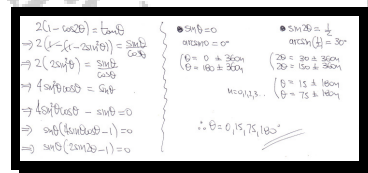 2(1-cos2θ) = tanθ
⇒ 2(1-(1-2sin²θ)) = sinθ/cosθ
⇒ 2(2sin²θ) = sinθ/cosθ
⇒ 4sin²θcosθ = sinθ
⇒ 4sin²θcosθ - sinθ = 0
⇒ sinθ(4sinθcosθ-1) = 0
⇒ sinθ(2sin2θ-1) = 0
• sinθ = 0
arcsin0 = 0°
(θ = 0 ± 360n
(θ = 180 ± 360n
n = 0,1,2,3...
• sin2θ = 1/2
arcsin(1/2) = 30°
(2θ = 30 ± 360n
(2θ = 150 ± 360n
(θ = 15 ± 180n
(θ = 75 ± 180n
∴ θ = 0, 15, 75, 180°